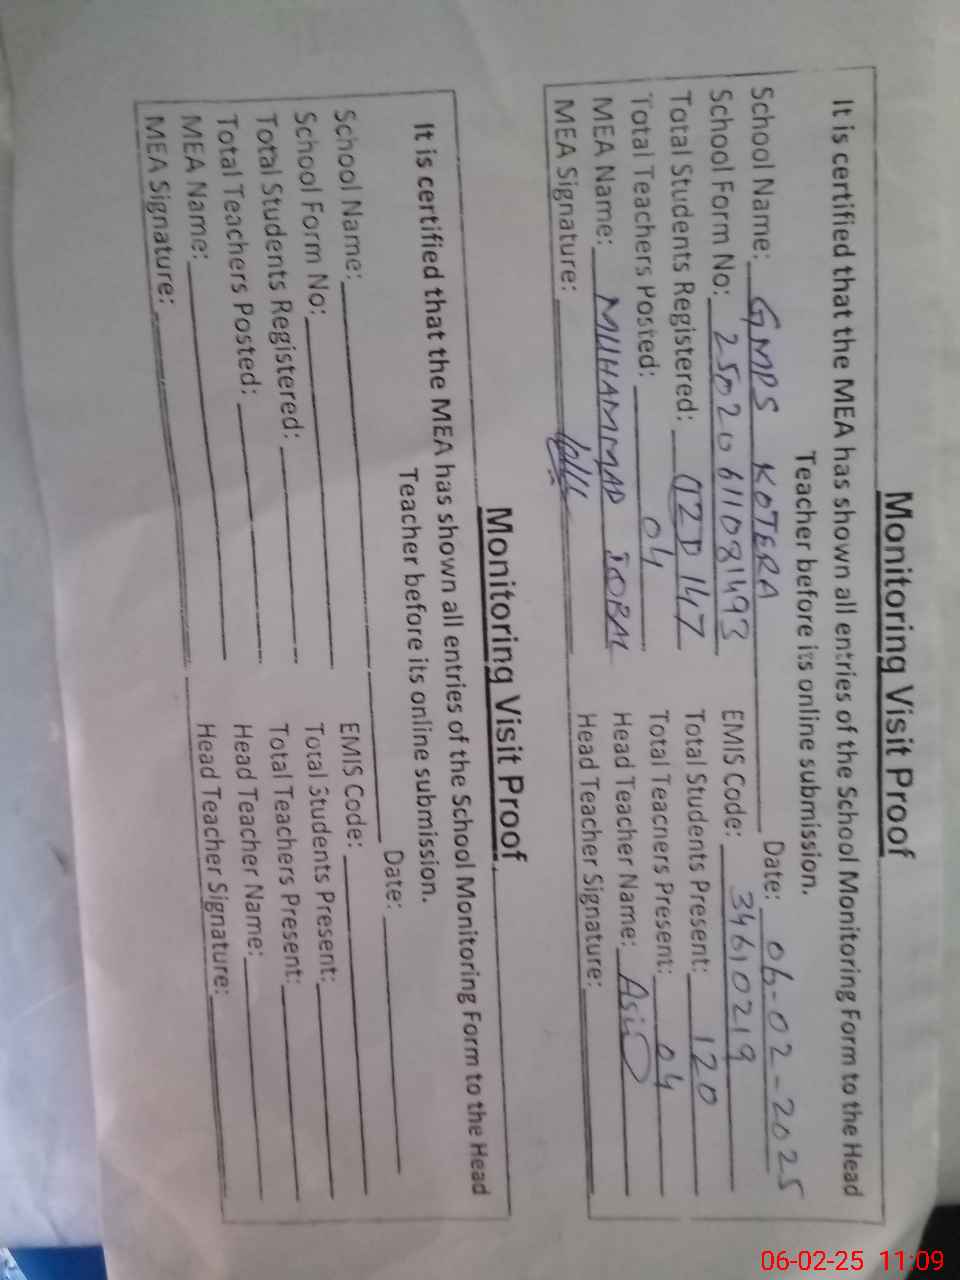 Monitoring Visit Proof
It is certified that the MEA has shown all entries of the School Monitoring Form to the Head
Teacher before its online submission.
School Name: GMPS KOTERA Date: 06-02-2025
School Form No: 250220611081493 EMIS Code: 34610219
Total Students Registered: 147 Total Students Present: 120
Total Teachers Posted: 04 Total Teachers Present: 04
MEA Name: MUHAMMAD IQBAL Head Teacher Name:
MEA Signature: Head Teacher Signature:
Monitoring Visit Proof
It is certified that the MEA has shown all entries of the School Monitoring Form to the Head
Teacher before its online submission.
School Name: Date:
School Form No: EMIS Code:
Total Students Registered: Total Students Present:
Total Teachers Posted: Total Teachers Present:
MEA Name: Head Teacher Name:
MEA Signature: Head Teacher Signature:
06-02-25 11:09